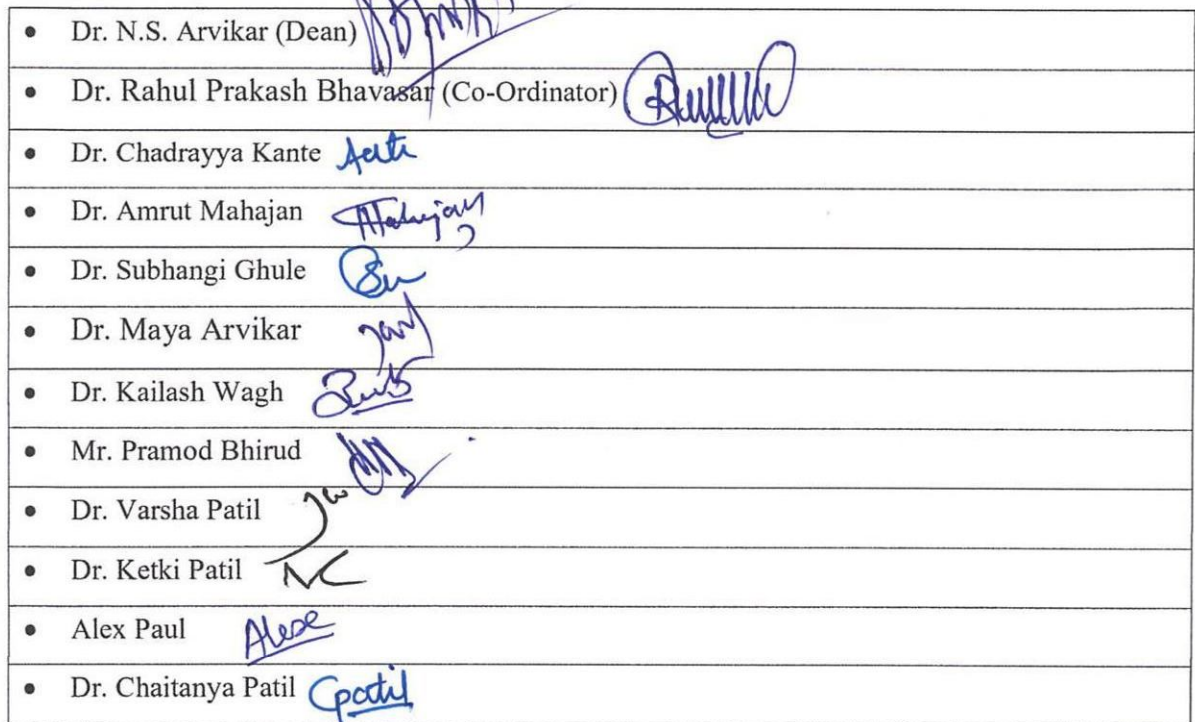 • Dr. N.S. Arvikar (Dean)
• Dr. Rahul Prakash Bhavasar (Co-Ordinator)
• Dr. Chadrayya Kante
• Dr. Amrut Mahajan Mahajan
• Dr. Subhangi Ghule
• Dr. Maya Arvikar
• Dr. Kailash Wagh
• Mr. Pramod Bhirud
• Dr. Varsha Patil
• Dr. Ketki Patil
• Alex Paul
• Dr. Chaitanya Patil Cpatil